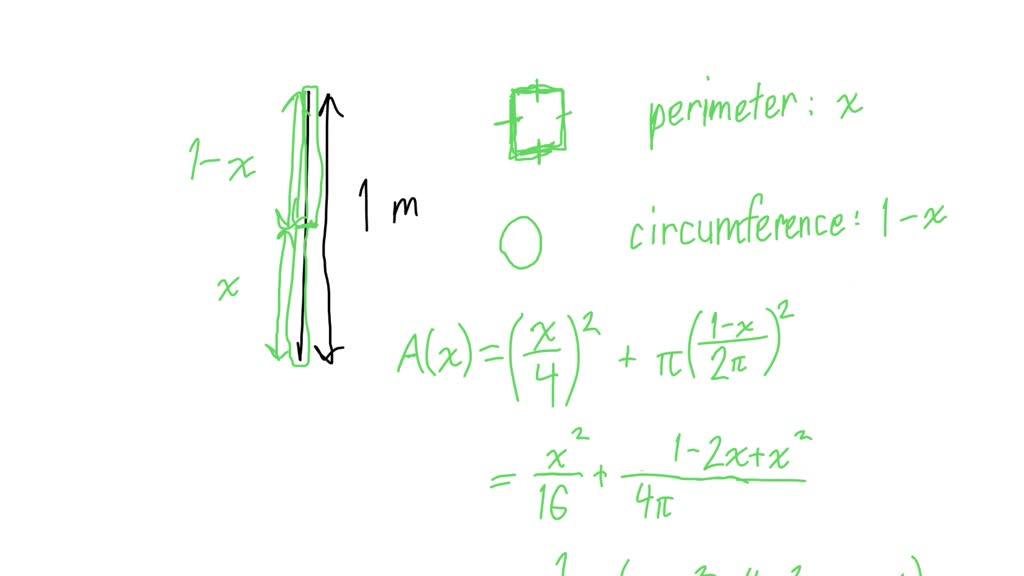 perimeter: x
1-x
1 m
circumference: 1-x
x
A(x) = (x/4)^2 + π((1-x)/2π)^2
= x^2/16 + (1-2x+x^2)/4π